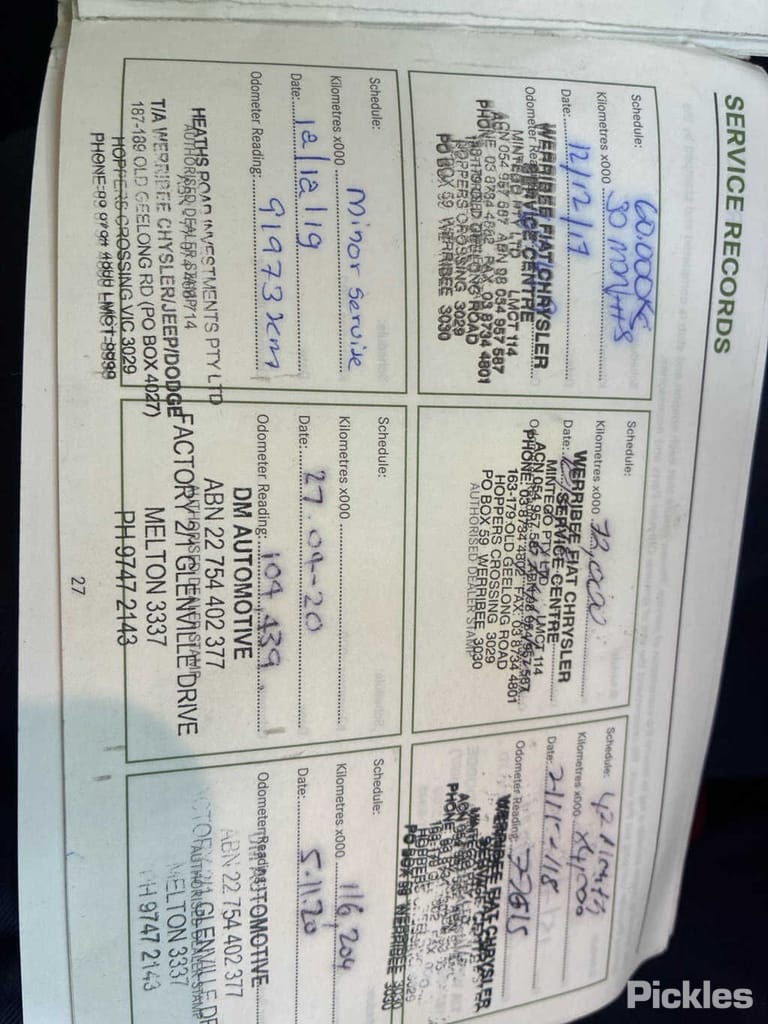 SERVICE RECORDS
Schedule: 60,000KS
Kilometres x000 30 MONTHS
Date: 12/12/17
WERRIBEE FIAT CHRYSLER
SERVICE CENTRE
MINTEGO PTY LTD LMCT 114
ACN 054 957 587 ABN 98 054 957 587
PHONE 03 8734 4802 FAX 03 8734 4801
HOPPERS CROSSING 3029
PO BOX 59 WERRIBEE 3030
Schedule:
Kilometres x000 72,000
Date:
WERRIBEE FIAT CHRYSLER
SERVICE CENTRE
MINTEGO PTY LTD LMCT 114
ACN 054 957 587
PHONE: 03 8734 4802 FAX: 03 8734 4801
163-179 OLD GEELONG ROAD
HOPPERS CROSSING 3029
PO BOX 59 WERRIBEE 3030
AUTHORISED DEALER STAMP
Schedule: 42 Months
Kilometres x000
Date:
Odometer Reading:
WERRIBEE FIAT CHRYSLER
SERVICE CENTRE
PO BOX 59 WERRIBEE 3030
Schedule:
Kilometres x000 Minor Service
Date: 12/12/19
Odometer Reading: 91973 km
HEATHS ROAD INVESTMENTS PTY LTD
AUTHORISED DEALER STAMP
T/A WERRIBEE CHYSLER/JEEP/DODGE
187-189 OLD GEELONG RD (PO BOX 4027)
HOPPERS CROSSING VIC 3029
LMCT 9899
Schedule:
Kilometres x000
Date: 27.04-20
Odometer Reading: 104,439
DM AUTOMOTIVE
ABN 22 754 402 377
AUTHORISED DEALER STAMP
FACTORY 2/1 GLENVILLE DRIVE
MELTON 3337
PH 9747 2143
Schedule:
Kilometres x000 116,204
Date: 5.11.20
Odometer Reading:
DM AUTOMOTIVE
ABN 22 754 402 377
AUTHORISED DEALER STAMP
FACTORY 2/1 GLENVILLE DR
MELTON 3337
PH 9747 2143
27
Pickles